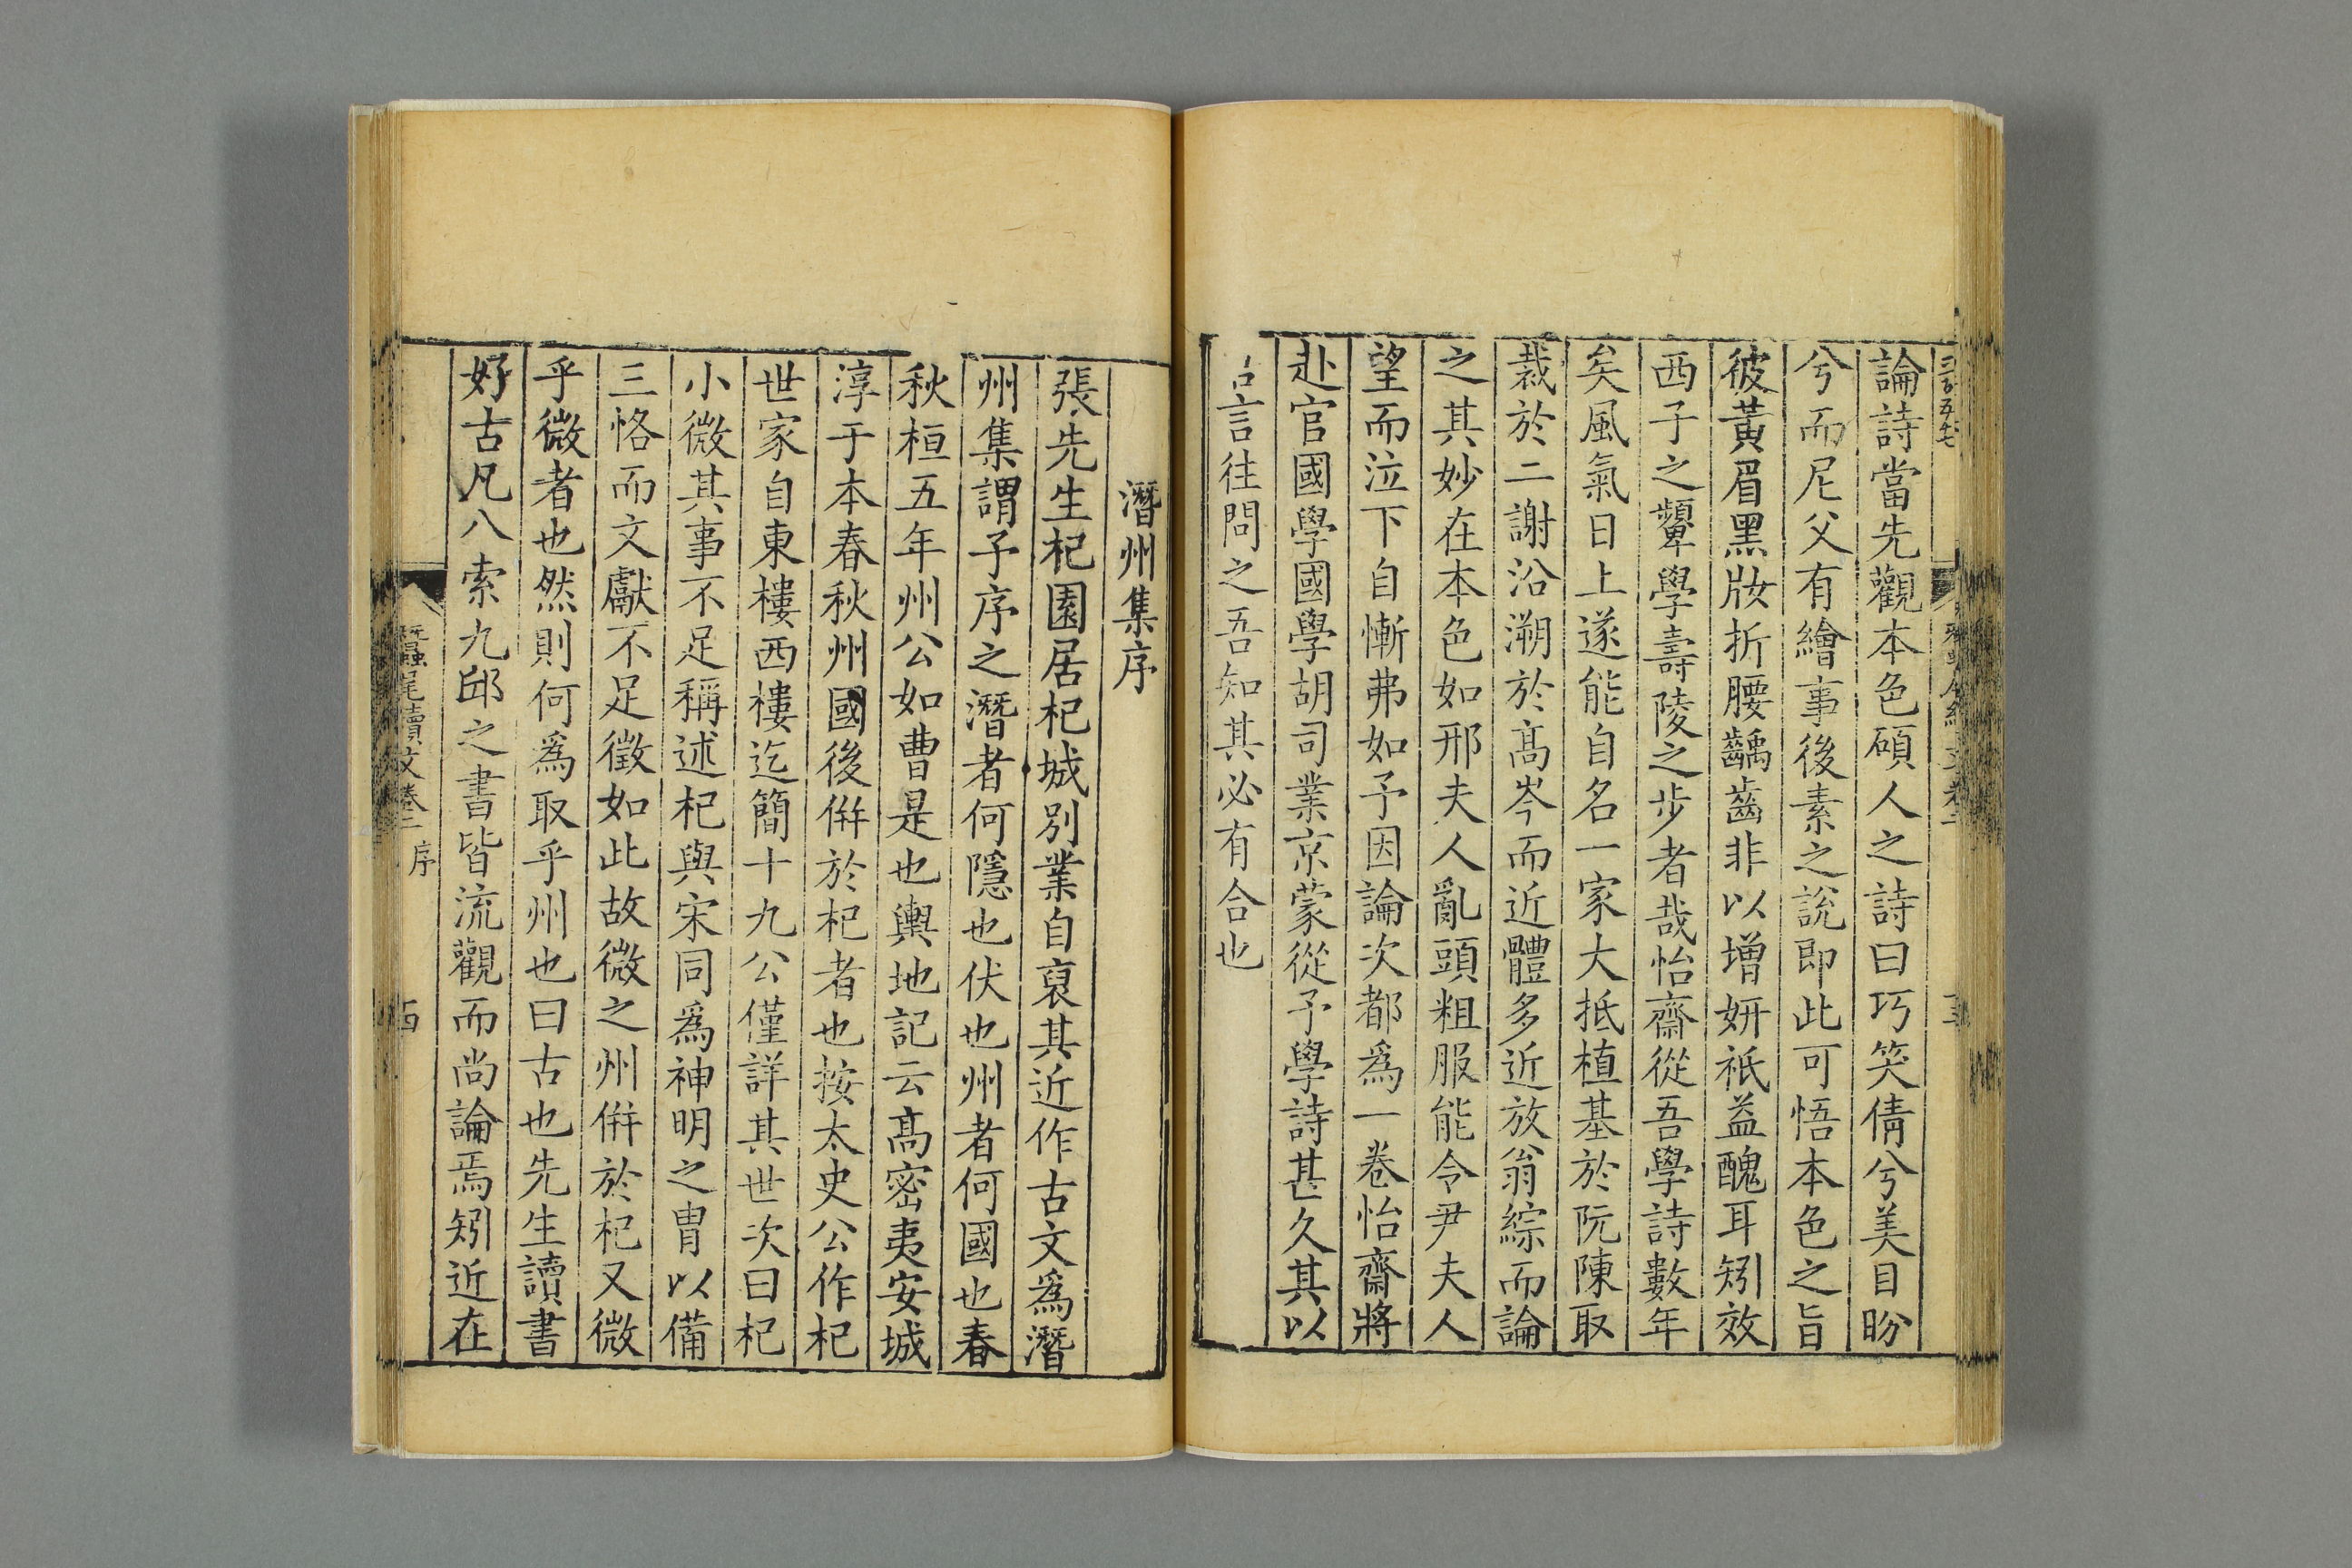 論詩當先觀本色碩人之詩曰巧笑倩兮美目盼
兮而尼父有繪事後素之說即此可悟本色之旨
彼黃眉黑妝折腰齲齒非以增妍祇益醜耳矧效
西子之顰學壽陵之步者哉怡齋從吾學詩數年
矣風氣日上遂能自名一家大抵植基於阮陳取
裁於二謝沿溯於高岑而近體多近放翁綜而論
之其妙在本色如邢夫人亂頭粗服能令尹夫人
望而泣下自慚弗如予因論次都為一卷怡齋將
赴官國學國學胡司業京蒙從予學詩甚久其以
言往問之吾知其必有合也
潛州集序
張先生杞園居杞城別業自裒其近作古文爲潛
州集謂予序之潛者何隱也伏也州者何國也春
秋桓五年州公如曹是也輿地記云高密夷安城
淳于本春秋州國後倂於杞者也按太史公作杞
世家自東樓西樓迄簡十九公僅詳其世次曰杞
小微其事不足稱述杞與宋同爲神明之胄以備
三恪而文獻不足徵如此故微之州倂於杞又微
乎微者也然則何爲取乎州也曰古也先生讀書
好古凡八索九邱之書皆流觀而尚論焉矧近在
蠶尾續文卷二 序